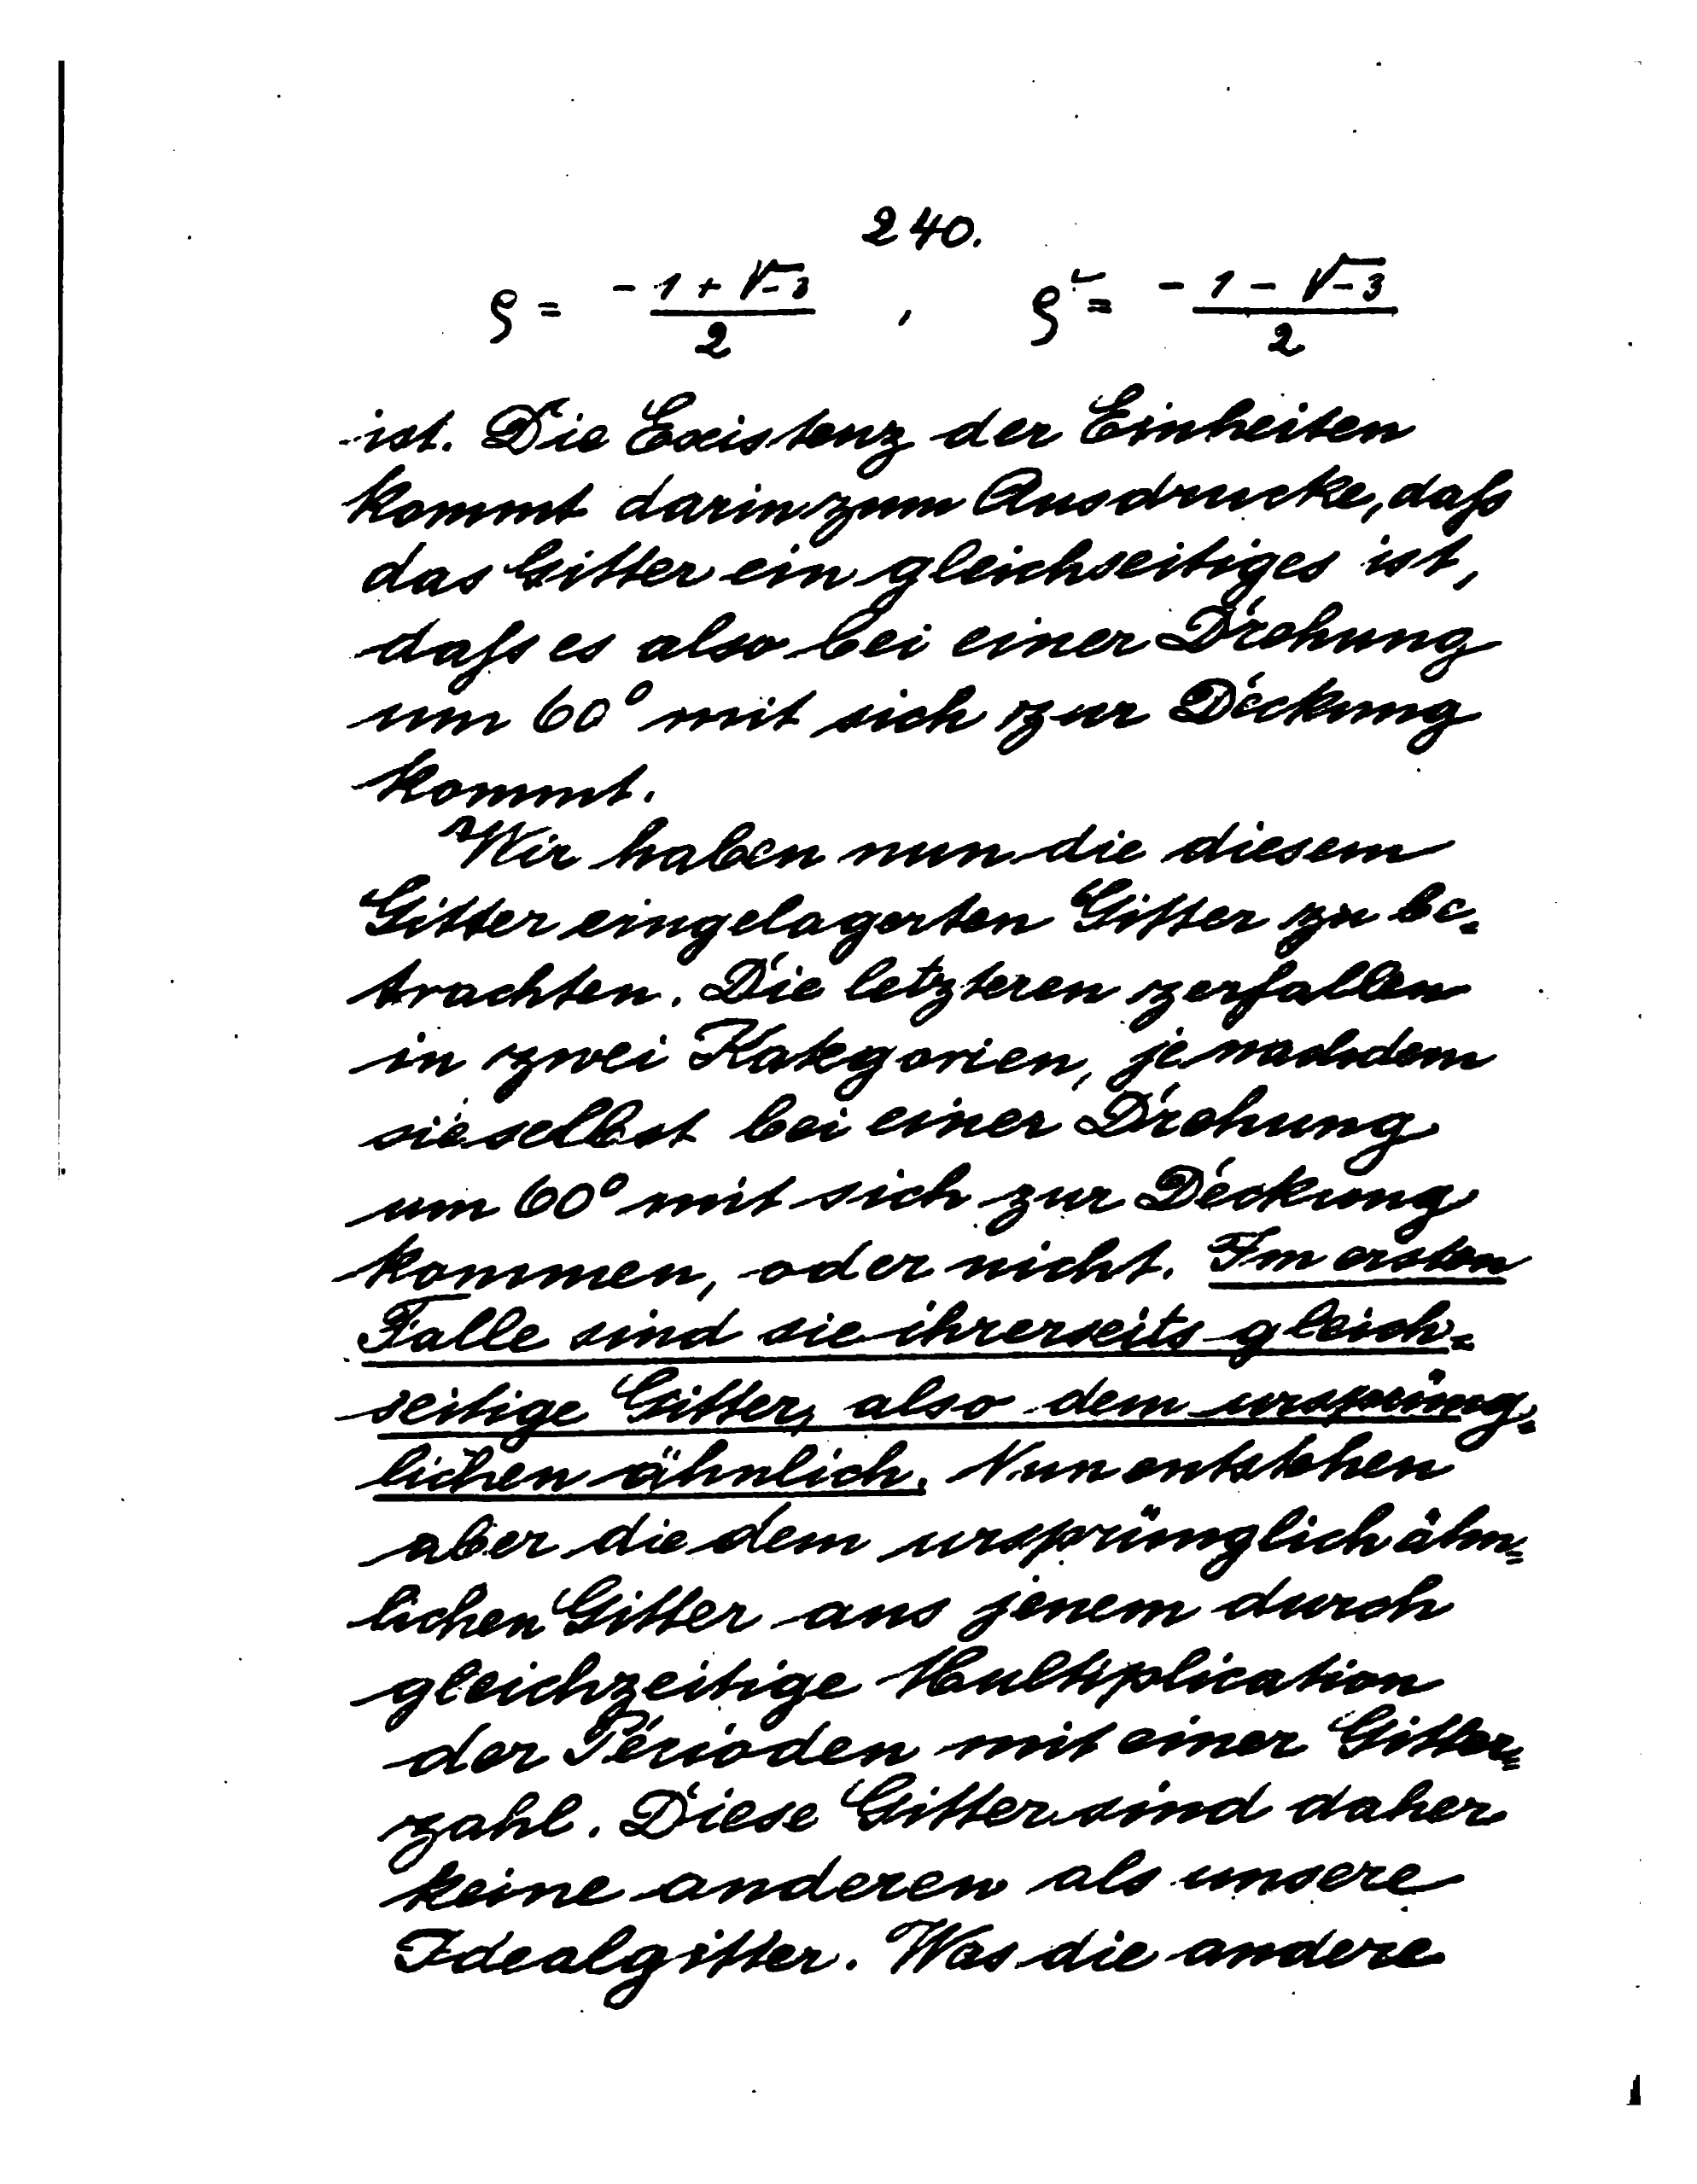 240.
ρ = (-1 + √-3)/2 , ρ² = (-1 - √-3)/2
ist. Die Existenz der Einheiten
kommt darin zum Ausdrucke, daß
das Gitter ein gleichseitiges ist,
daß es also bei einer Drehung
um 60° mit sich zur Deckung
kommt.
Wir haben nun die diesem
Gitter eingelagerten Gitter zu be=
trachten. Die letzteren zerfallen
in zwei Kategorien, je nachdem
sie selbst bei einer Drehung
um 60° mit sich zur Deckung
kommen, oder nicht. Im ersten
Falle sind sie ihrerseits gleich=
seitige Gitter, also dem ursprüng=
lichen ähnlich. Nun entstehen
aber die dem ursprünglich ähn=
lichen Gitter aus jenem durch
gleichzeitige Multiplication
der Perioden mit einer Gitter=
zahl. Diese Gitter sind daher
keine anderen als unsere
Idealgitter. Was die andere